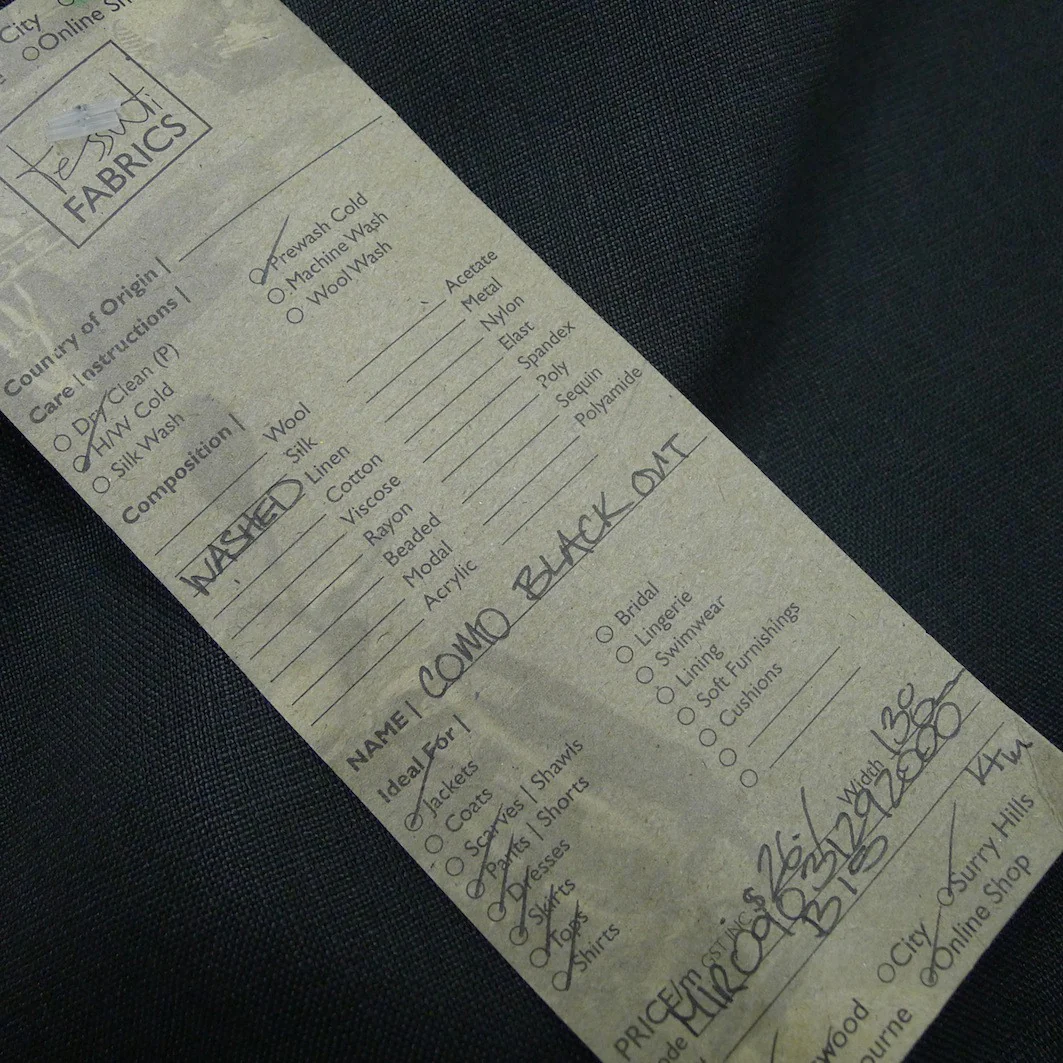 City
Online
tessuti
FABRICS
Country of Origin |
Care Instructions |
Dry Clean (P)
H/W Cold
Silk Wash
Prewash Cold
Machine Wash
Wool Wash
Composition |
Wool
Silk
WASHED Linen
Cotton
Viscose
Rayon
Beaded
Modal
Acrylic
Acetate
Metal
Nylon
Elast
Spandex
Poly
Sequin
Polyamide
NAME | COMO BLACK OUT
Ideal For |
Jackets
Coats
Scarves | Shawls
Pants | Shorts
Dresses
Skirts
Tops
Shirts
Bridal
Lingerie
Swimwear
Lining
Soft Furnishings
Cushions
PRICE/m GST INC. $26.- Width 130
B18
City
Surry Hills
Online Shop